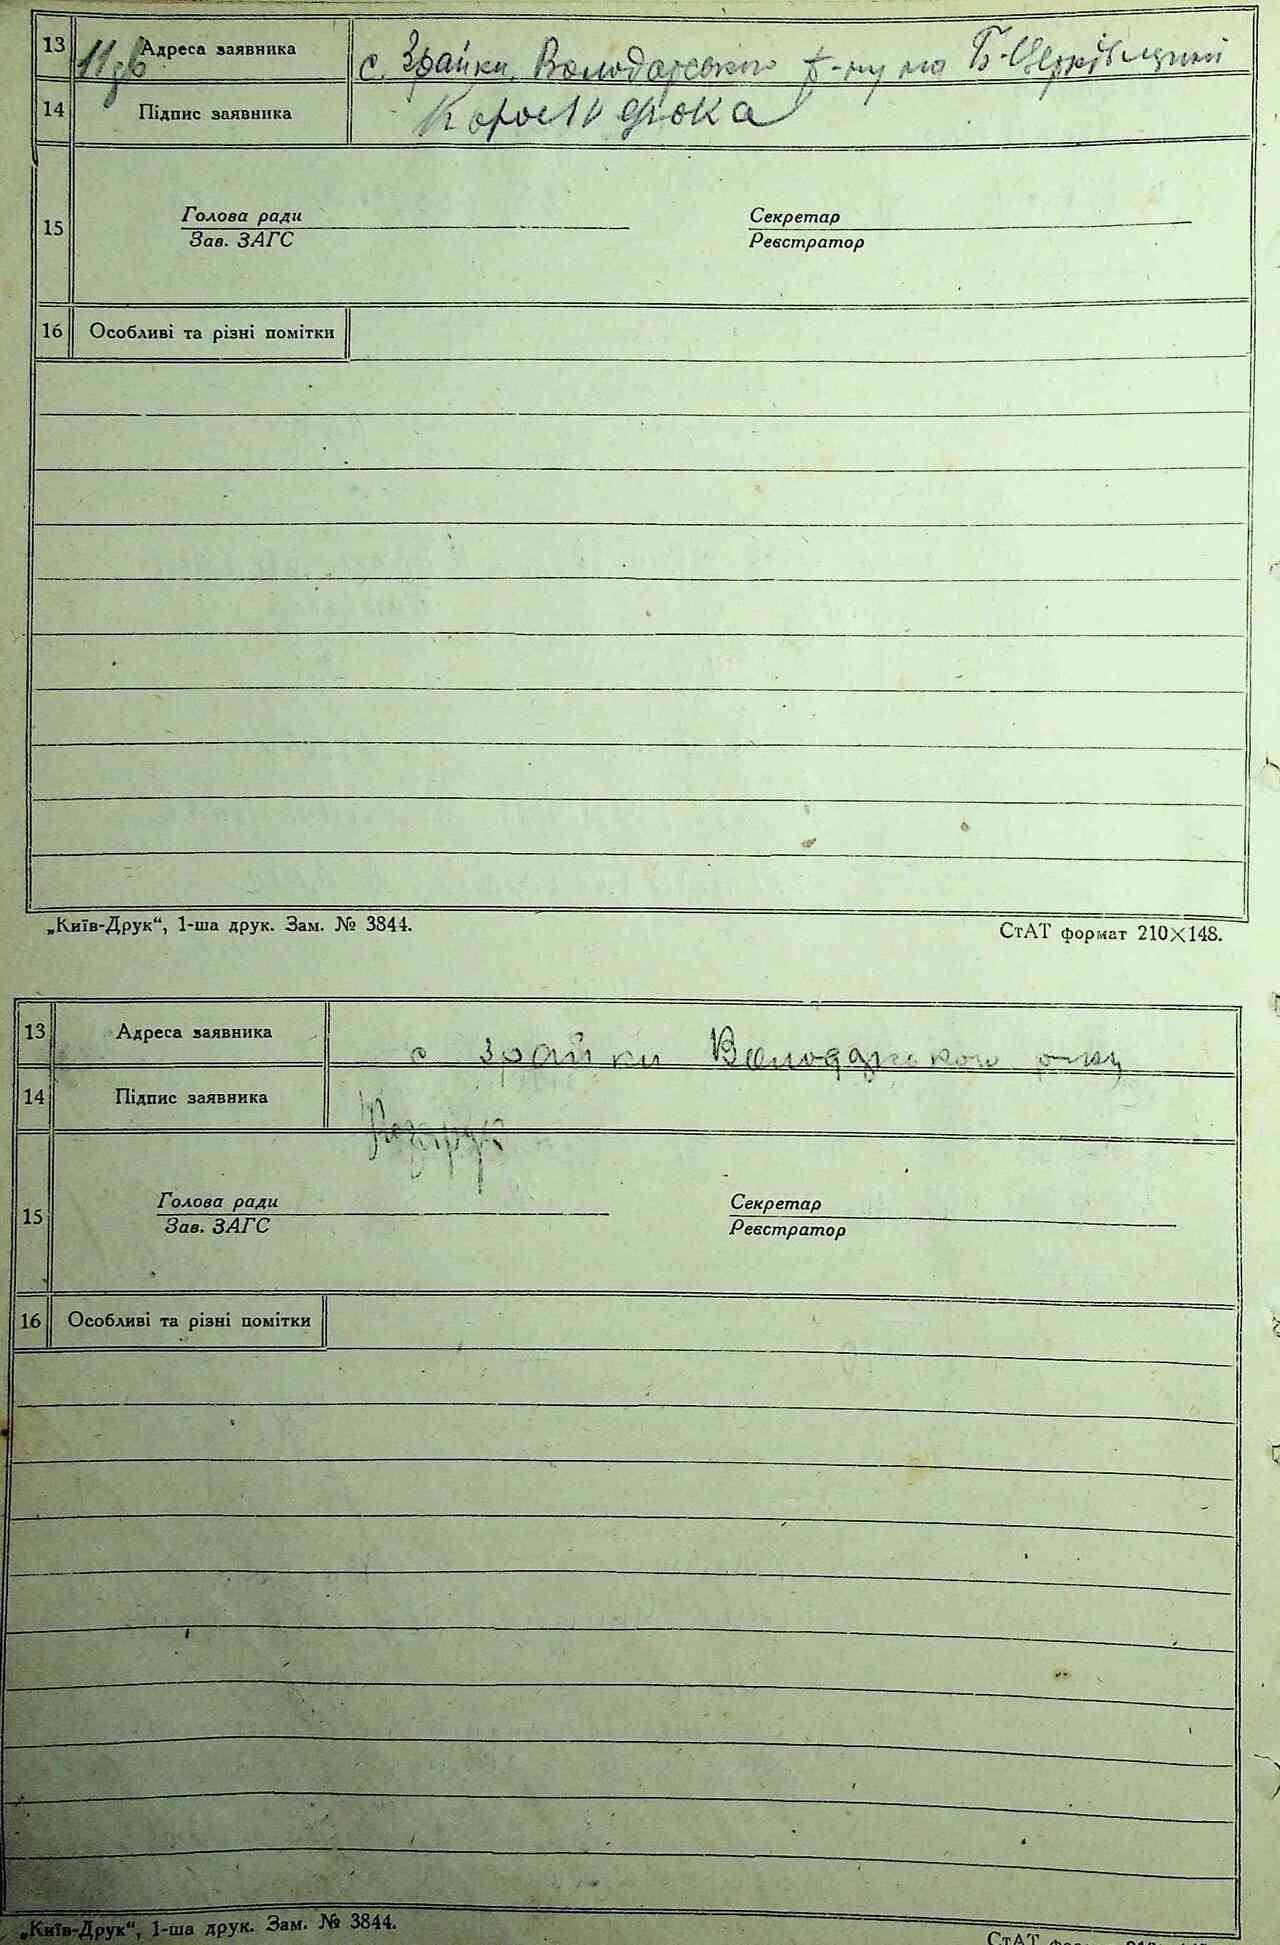 13 Адреса заявника с. Зрайки Володарського р-ну на Б-Церківщині
14 Підпис заявника
15 Голова ради Секретар
Зав. ЗАГС Реєстратор
16 Особливі та різні помітки
„Київ-Друк“, 1-ша друк. Зам. № 3844. СтАТ формат 210×148.
13 Адреса заявника с Зрайки
14 Підпис заявника
15 Голова ради Секретар
Зав. ЗАГС Реєстратор
16 Особливі та різні помітки
„Київ-Друк“, 1-ша друк. Зам. № 3844. СтАТ